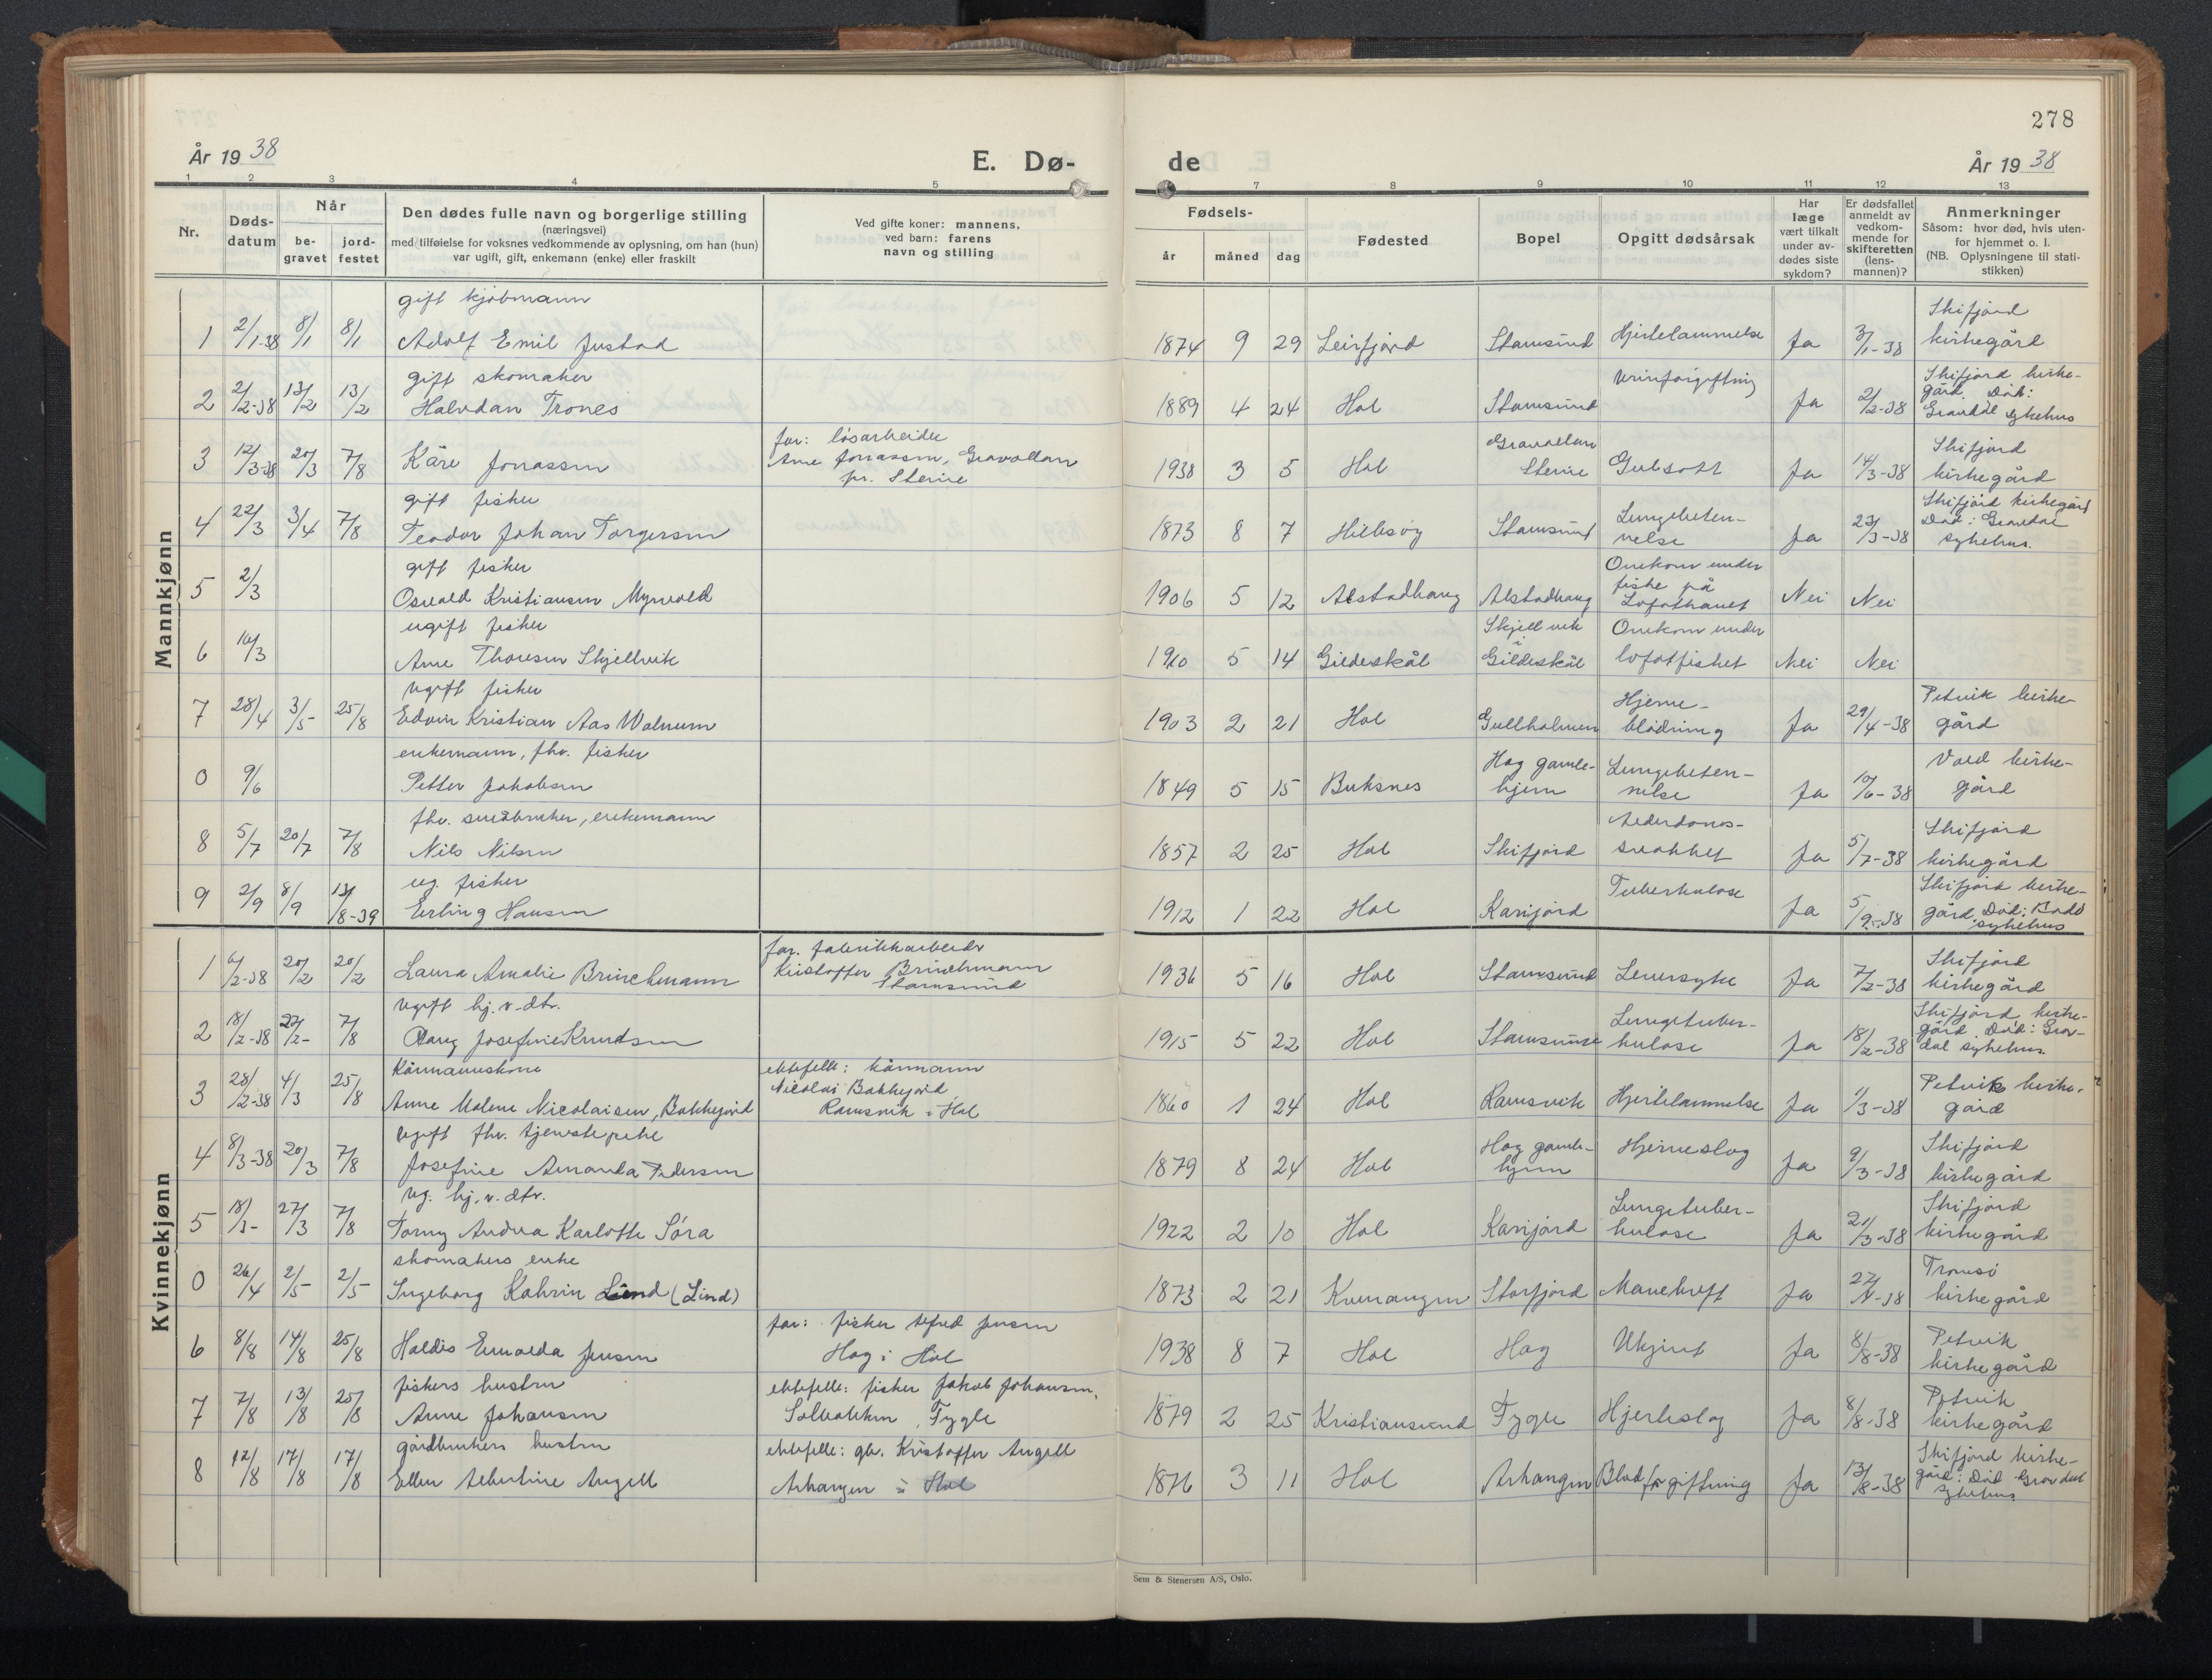 278
År 1938
E. Dø-
de
År 1938
1 2 3 4 5 7 8 9 10 11 12 13
Nr.
Døds-
datum
Når
be-
gravet
jord-
festet
Den dødes fulle navn og borgerlige stilling
(næringsvei)
med tilføielse for voksnes vedkommende av oplysning, om han (hun)
var ugift, gift, enkemann (enke) eller fraskilt
Ved gifte koner: mannens,
ved barn: farens
navn og stilling
Fødsels-
år måned dag
Fødested
Bopel
Opgitt dødsårsak
Har
læge
vært tilkalt
under av-
dødes siste
sykdom?
Er dødsfallet
anmeldt av
vedkom-
mende for
skifteretten
(lens-
mannen)?
Anmerkninger
Såsom: hvor død, hvis uten-
for hjemmet o. l.
(NB. Oplysningene til stati-
stikken)
Mannkjønn
gift kjøbmann
Skifjord
1 2/1-38 8/1 8/1 Adolf Emil Justad 1874 9 29 Leirfjord Stamsund Hjertelammelse Ja 3/1-38 kirkegård
gift skomaker
Urinforgiftning
Skifjord kirke-
2 2/2-38 13/2 13/2 Halvdan Trones 1889 4 24 Hol Stamsund Ja 2/2-38 gård. Død:
Gravdal sykehus
far: løsarbeider
Skifjord
3 12/3-38 20/3 7/8 Kåre Jonassen Arne Jonassen, Gravollan 1938 3 5 Hol Gravollan
pr. Steine
Steine Gulsott Ja 14/3-38 kirkegård
gift fisker
Skifjord kirkegård
4 22/3 3/4 7/8 Teodor Johan Torgersen 1873 8 7 Hillesøy Stamsund Lungebeten-
nelse Ja 23/3-38 Død: Gravdal
sykehus.
gift fisker
Omkom under
5 2/3 Osvald Kristiansen Myrvold 1906 5 12 Alstadhaug Alstadhaug fiske på
Lofothavet Nei Nei
ugift fisker
Skjellvik Omkom under
6 16/3 Arne Thoresen Skjellvik 1910 5 14 Gildeskål i
Gildeskål lofotfisket Nei Nei
Ugift fisker
Petvik kirke-
7 28/4 3/5- 25/8 Edvin Kristian Aas Walnum 1903 2 21 Hol Gullholmen Hjerne-
blødning Ja 29/4-38 gård
enkemann, fhv. fisker
Vold kirke-
0 9/6 Petter Jakobsen 1849 5 15 Buksnes Hag gamle-
hjem Lungebeten-
nelse Ja 10/6-38 gård
fhv. småbruker, enkemann
Alderdoms-
Skifjord
8 5/7 20/7 7/8 Nils Nilsen 1857 2 25 Hol Skifjord svakhet Ja 5/7-38 kirkegård
ug. fisker
Tuberkulose
Skifjord kirke-
9 2/9 8/9 13/8-39 Erling Hansen 1912 1 22 Hol Karijord Ja 5/9-38 gård. Død: Bodø
sykehus
Kvinnekjønn
far. fabrikkarbeider
Skifjord
1 6/2-38 20/2 20/2 Laura Amalie Brinchmann Kristoffer Brinchmann
Stamsund 1936 5 16 Hol Stamsund Leversyke Ja 7/2-38 kirkegård
Ugift hj.v. dtr.
Skifjord kirke-
2 18/2-38 27/2- 7/8 Josefine Knudsen 1915 5 22 Hol Stamsund Lungetuber-
kulose Ja 18/2-38 gård. Død: Grav-
dal sykehus.
Kårmannskone
ektefelle: kårmann
Petvik kirke-
3 28/2-38 4/3 25/8 Anne Malene Nicolaisen, Bakkejord Nicolai Bakkejord
Ramsvik i Hol 1860 1 24 Hol Ramsvik Hjertelammelse Ja 1/3-38 gård
Ugift fhv. tjenestepike
Skifjord
4 8/3-38 20/3 7/8 Josefine Amanda Pedersen 1879 8 24 Hol Hag gamle-
hjem Hjerneslag Ja 9/3-38 kirkegård
ug. hj.v. dtr.
Skifjord
5 18/3- 27/3 7/8 Torny Andrea Karlotte Søra 1922 2 10 Hol Karijord Lungetuber-
kulose Ja 21/3-38 kirkegård
skomakers enke
Tromsø
0 26/4 2/5- 2/5- Ingeborg Katrin Lind (Lind) 1873 2 21 Kvenangen Storfjord Mavekreft Ja 27/4-38 kirkegård
far: fisker Alfred Jensen
Petvik
6 8/8 14/8 25/8 Haldis Ernalda Jensen Hag i Hol 1938 8 7 Hol Hag Ukjent Ja 8/8-38 kirkegård
fiskers hustru
ektefelle: fisker Jakob Johansen,
Petvik
7 7/8 13/8 25/8 Anne Johansen Solbakken, Fygle 1879 2 25 Kristiansund Fygle Hjerteslag Ja 8/8-38 kirkegård
gårdbrukers hustru
ektefelle: gbr. Kristoffer Angell
Skifjord kirke-
8 12/8 17/8 17/8 Ellen Albertine Angell Arhaugen i Hol 1876 3 11 Hol Arhaugen Blodforgiftning Ja 13/8-38 gård: Død Gravdal
sykehus.
Sem & Stenersen A/S, Oslo.